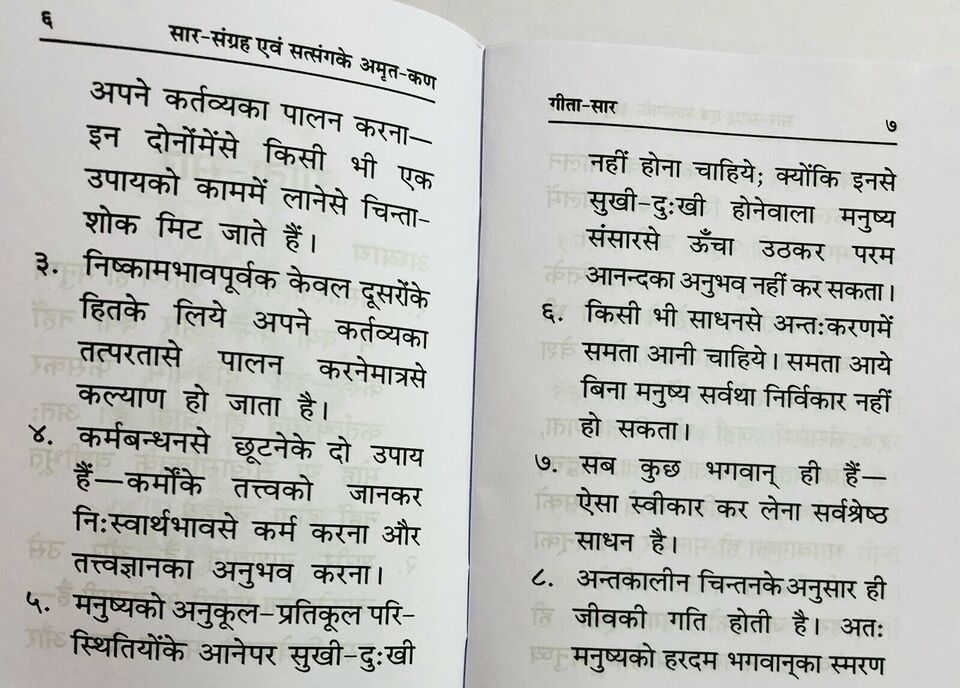 ६
सार-संग्रह एवं सत्संगके अमृत-कण
अपने कर्तव्यका पालन करना—
इन दोनोंमेंसे किसी भी एक
उपायको काममें लानेसे चिन्ता-
शोक मिट जाते हैं।
३. निष्कामभावपूर्वक केवल दूसरोंके
हितके लिये अपने कर्तव्यका
तत्परतासे पालन करनेमात्रसे
कल्याण हो जाता है।
४. कर्मबन्धनसे छूटनेके दो उपाय
हैं—कर्मोंके तत्त्वको जानकर
नि:स्वार्थभावसे कर्म करना और
तत्त्वज्ञानका अनुभव करना।
५. मनुष्यको अनुकूल-प्रतिकूल परि-
स्थितियोंके आनेपर सुखी-दु:खी
गीता-सार
७
नहीं होना चाहिये; क्योंकि इनसे
सुखी-दु:खी होनेवाला मनुष्य
संसारसे ऊँचा उठकर परम
आनन्दका अनुभव नहीं कर सकता।
६. किसी भी साधनसे अन्त:करणमें
समता आनी चाहिये। समता आये
बिना मनुष्य सर्वथा निर्विकार नहीं
हो सकता।
७. सब कुछ भगवान् ही हैं—
ऐसा स्वीकार कर लेना सर्वश्रेष्ठ
साधन है।
८. अन्तकालीन चिन्तनके अनुसार ही
जीवकी गति होती है। अत:
मनुष्यको हरदम भगवान्का स्मरण